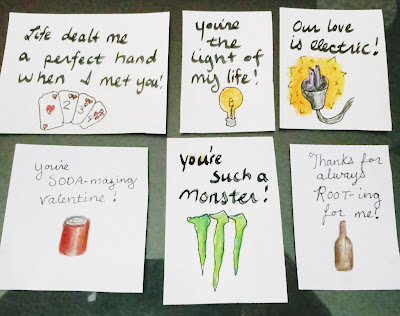 Life dealt me
a perfect hand
when I met you!
you're
the
light of
my life!
Our love
is electric!
you're
SODA-mazing
valentine!
you're
Such a
Monster!
Thanks for
always
ROOT-ing
for me!